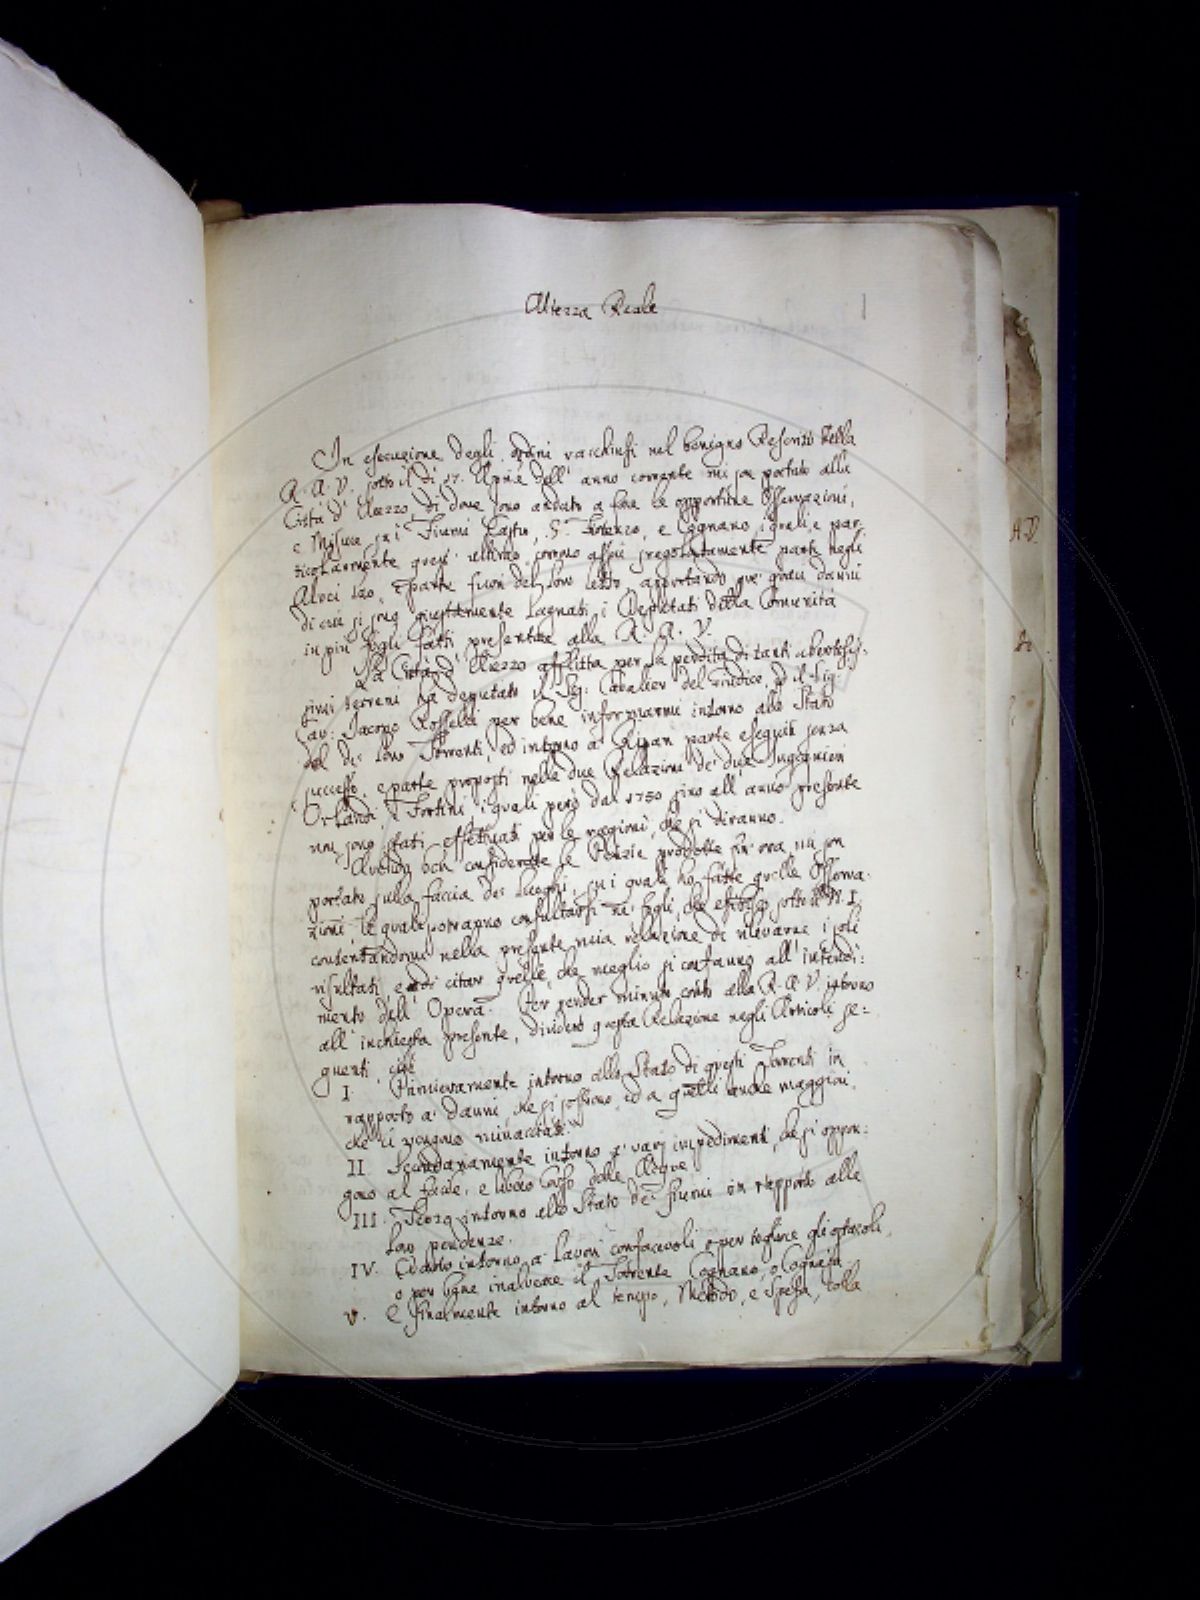 Altezza Reale
In esecuzione degli ordini racchiusi nel benigno Rescritto della
R. A. V. sotto il dì 17. Aprile dell' anno corrente mi son portato alla
Città d' Arezzo, di dove sono andato a fare le opportune Osservazioni,
e Misure su i Fiumi Castro, S. Lorenzo, e Cognano, i quali, e par-
ticolarmente quest' ultimo, corrono assai sregolatamente parte negli
Alvei loro, e parte fuori del loro letto, apportando que' gravi danni
di cui si sono giustamente lagnati i Deputati della Comunità
in più fogli fatti presentare alla R. A. V.
La Città d' Arezzo afflitta per la perdita di tanti ubertosis-
simi terreni ha deputato il Sig: Cavalier del Giudice, ed il Sig:
Cav: Jacopo Rosselli per bene informarmi intorno allo Stato
del de' loro Torrenti, ed intorno a' Ripari parte eseguiti senza
successo, e parte proposti nelle due Relazioni de' due Ingegnieri
Orlandi, e Fortini, i quali però dal 1750 sino all' anno presente
non sono stati effettuati per le ragioni, che si diranno.
Avendo ben considerate le Perizie prodotte fin' ora, mi son
portato sulla faccia de' Luoghi, su i quali ho fatte quelle Osserva-
zioni, le quali potranno consultarsi ne' fogli, che esibisco sotto il N. I.
contentandomi nella presente mia relazione di rilevarne i soli
risultati, e di citar quelle, che meglio si confanno all' intendi:
mento dell' Opera. Per render minuto conto alla R. A. V. intorno
all' inchiesta presente, dividerò questa Relazione negli Articoli se:
guenti, cioè
I. Primieramente intorno allo Stato di questi Torrenti in
rapporto a' danni, che si soffrono, ed a quelli anche maggiori,
che ci vengono minacciati.
II. Secondariamente intorno a' varj impedimenti, che si oppon:
gono al facile, e libero Corso delle Acque
III. Terzo intorno allo Stato de' fiumi in rapporto alle
loro pendenze.
IV. Quarto intorno a' lavori confacevoli o per togliere gli ostacoli,
o per bene inalveare il Torrente Cognano, o Cognaia
V. E finalmente intorno al tempo, Metodo, e Spesa, colla